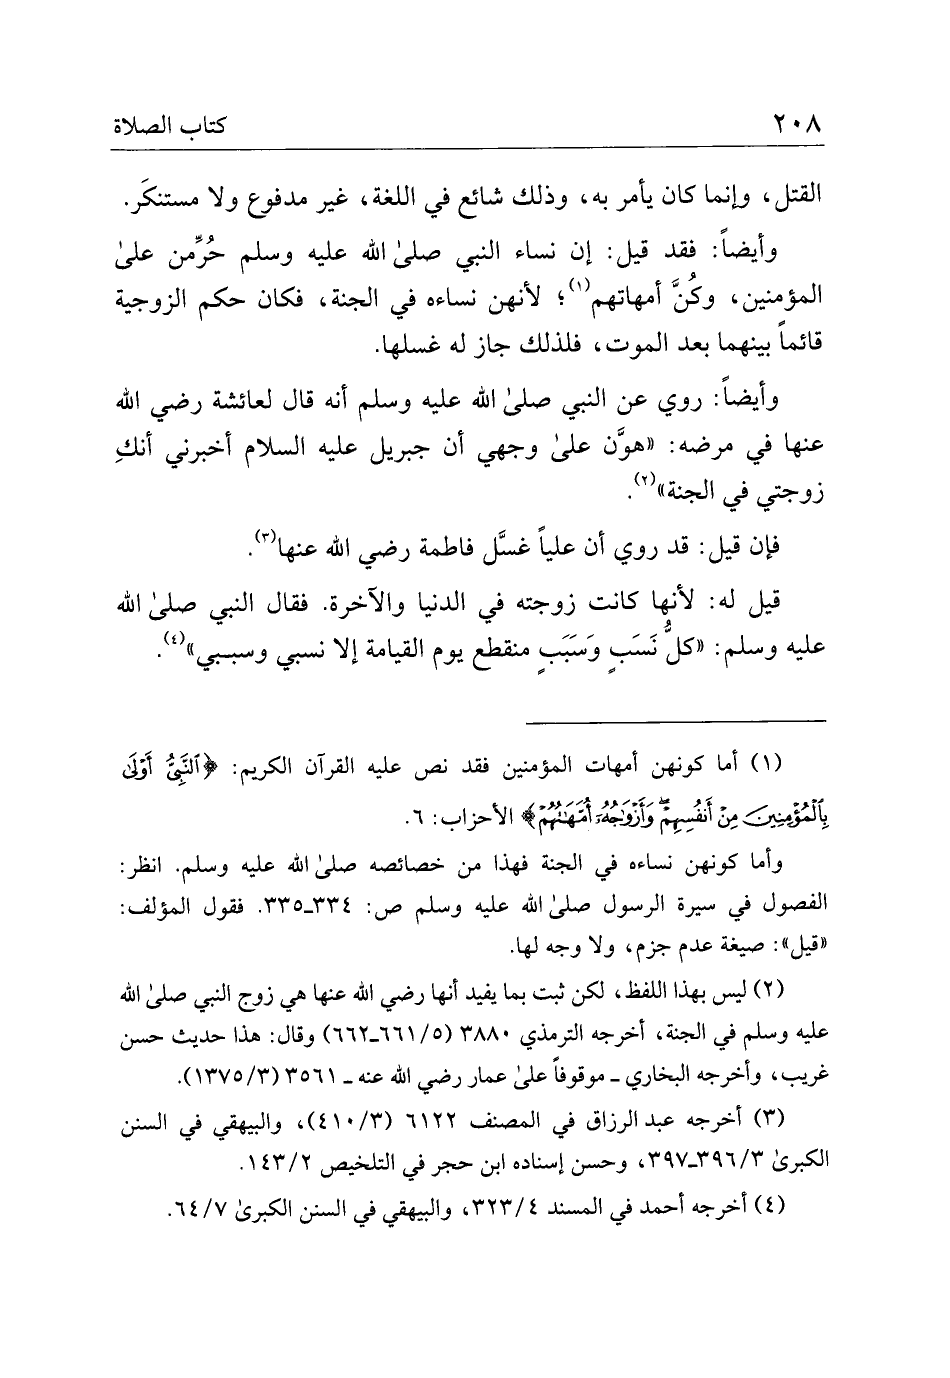 ٢٠٨ كتاب الصلاة
القتل، وإنما كان يأمر به، وذلك شائع في اللغة، غير مدفوع ولا مستنكَر.
وأيضاً: فقد قيل: إن نساء النبي صلىٰ الله عليه وسلم حُرِّمن علىٰ
المؤمنين، وكُنَّ أمهاتهم(١)؛ لأنهن نساءه في الجنة، فكان حكم الزوجية
قائماً بينهما بعد الموت، فلذلك جاز له غسلها.
وأيضاً: روي عن النبي صلىٰ الله عليه وسلم أنه قال لعائشة رضي الله
عنها في مرضه: «هوَّن علىٰ وجهي أن جبريل عليه السلام أخبرني أنكِ
زوجتي في الجنة»(٢).
فإن قيل: قد روي أن علياً غسَّل فاطمة رضي الله عنها(٣).
قيل له: لأنها كانت زوجته في الدنيا والآخرة. فقال النبي صلىٰ الله
عليه وسلم: «كلُّ نَسَبٍ وَسَبَبٍ منقطع يوم القيامة إلا نسبي وسببي»(٤).
(١) أما كونهن أمهات المؤمنين فقد نص عليه القرآن الكريم: ﴿ٱلنَّبِيُّ أَوْلَىٰ
بِٱلْمُؤْمِنِينَ مِنْ أَنفُسِهِمْ ۖ وَأَزْوَٰجُهُۥٓ أُمَّهَٰتُهُمْ﴾ الأحزاب: ٦.
وأما كونهن نساءه في الجنة فهذا من خصائصه صلىٰ الله عليه وسلم. انظر:
الفصول في سيرة الرسول صلىٰ الله عليه وسلم ص: ٣٣٤ـ٣٣٥. فقول المؤلف:
«قيل»: صيغة عدم جزم، ولا وجه لها.
(٢) ليس بهذا اللفظ، لكن ثبت بما يفيد أنها رضي الله عنها هي زوج النبي صلىٰ الله
عليه وسلم في الجنة، أخرجه الترمذي ٣٨٨٠ (٦٦١/٥ـ٦٦٢) وقال: هذا حديث حسن
غريب، وأخرجه البخاري ـ موقوفاً علىٰ عمار رضي الله عنه ـ ٣٥٦١ (١٣٧٥/٣).
(٣) أخرجه عبد الرزاق في المصنف ٦١٢٢ (٤١٠/٣)، والبيهقي في السنن
الكبرىٰ ٣٩٦/٣ـ٣٩٧، وحسن إسناده ابن حجر في التلخيص ١٤٣/٢.
(٤) أخرجه أحمد في المسند ٣٢٣/٤، والبيهقي في السنن الكبرىٰ ٦٤/٧.